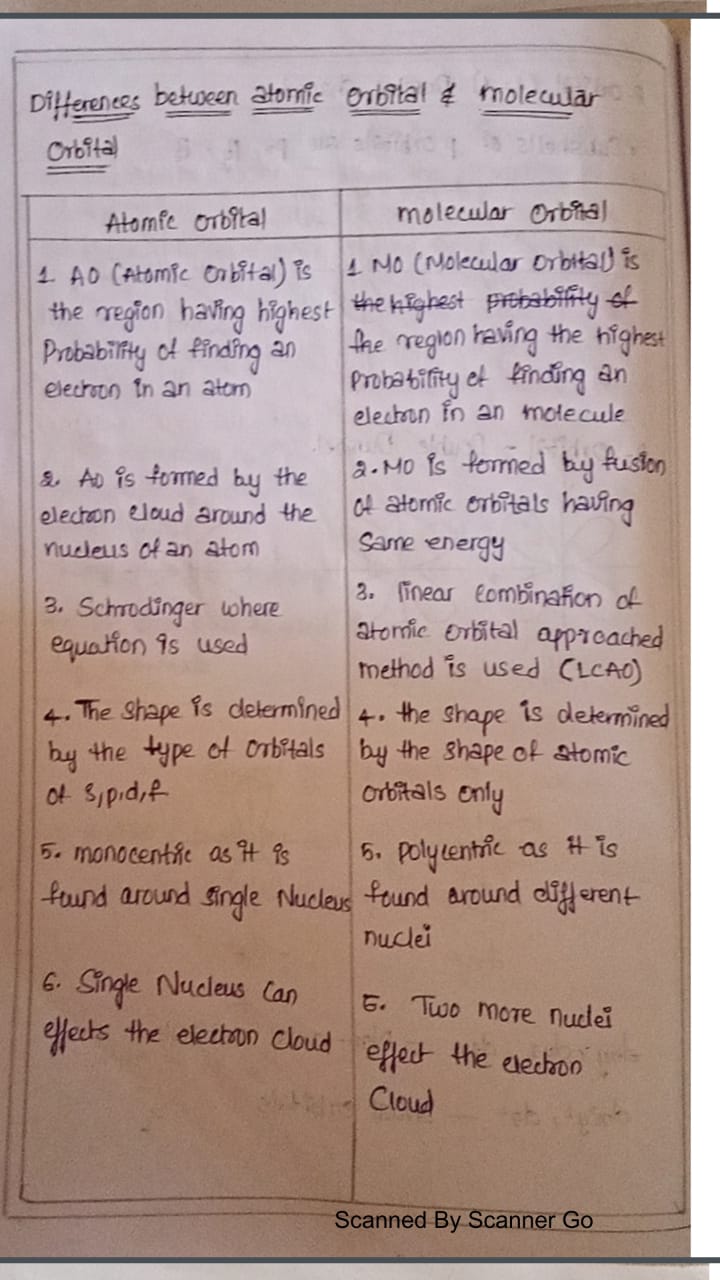 Differences between atomic orbital & molecular
Orbital
Atomic orbital
molecular Orbital
1 AO (Atomic Orbital) is
the region having highest
Probability of finding an
electron in an atom
1 MO (Molecular Orbital) is
the highest probability of
the region having the highest
Probability of finding an
electron in an molecule
2. AO is formed by the
electron cloud around the
nucleus of an atom
2. MO is formed by fusion
of atomic orbitals having
Same energy
3. Schrodinger where
equation is used
3. linear combination of
atomic orbital approached
method is used (LCAO)
4. The shape is determined
by the type of orbitals
of s,p,d,f
4. the shape is determined
by the shape of atomic
orbitals only
5. monocentric as it is
found around single Nucleus
5. polycentric as it is
found around different
nuclei
6. Single Nucleus Can
effects the electron cloud
6. Two more nuclei
effect the electron
Cloud
Scanned By Scanner Go